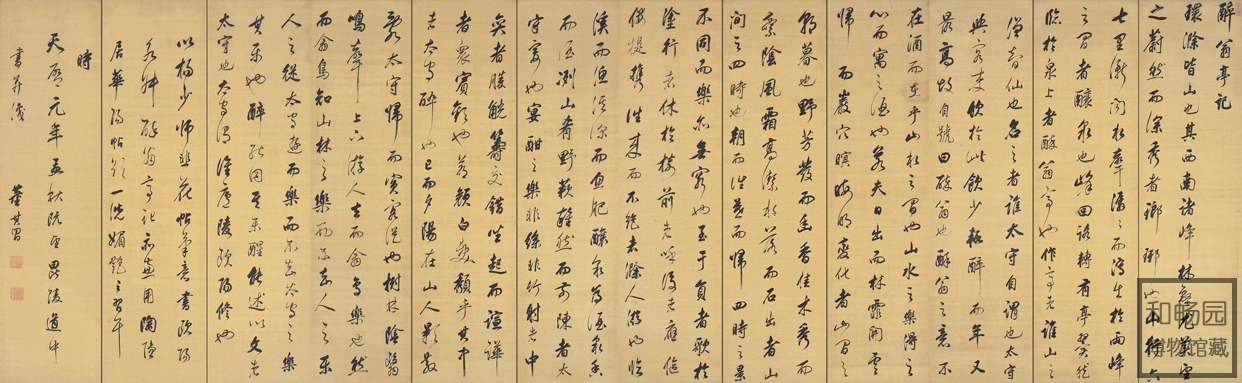 醉翁亭記
環滁皆山也其西南諸峰林壑尤美望
之蔚然而深秀者瑯琊也山行六
七里漸聞水聲潺潺而瀉出於兩峰
之間者釀泉也峰回路轉有亭翼然
臨於泉上者醉翁亭也作亭者誰山之
僧智仙也名之者誰太守自謂也太守
與客來飲於此飲少輒醉而年又
最高故自號曰醉翁也醉翁之意不
在酒而在乎山水之間也山水之樂得之
心而寓之酒也若夫日出而林霏開雲
歸而巖穴暝晦明變化者山間之
朝暮也野芳發而幽香佳木秀而
繁陰風霜高潔水落而石出者山
間之四時也朝而往暮而歸四時之景
不同而樂亦無窮也至于負者歌於
塗行者休於樹前者呼後者應傴
僂提攜往來而不絕者滁人遊也臨
溪而漁溪深而魚肥釀泉為酒泉香
而酒洌山肴野蔌雜然而前陳者太
守宴也宴酣之樂非絲非竹射者中
奕者勝觥籌交錯坐起而諠譁
者眾賓歡也蒼顏白髮頹乎其中
者太守醉也已而夕陽在山人影散
亂太守歸而賓客從也樹林陰翳
鳴聲上下遊人去而禽鳥樂也然
而禽鳥知山林之樂而不知人之樂
人之從太守遊而樂而不知太守之樂
其樂也醉能同其樂醒能述以文者
太守也太守謂誰廬陵歐陽脩也
以楊少師韭花帖筆意書歐陽
永叔醉翁亭記亦兼用陶隱
居華陽帖欲一洗媚艷之習耳
時
天啟元年孟秋既望毘陵道中
書并識 董其昌
和畅园
博物馆藏